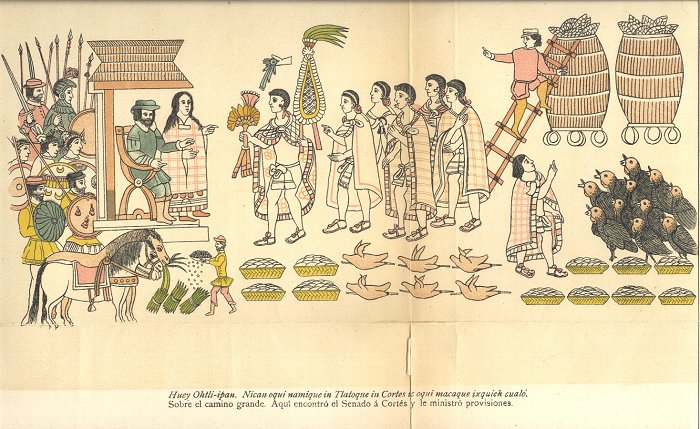 Huey Ohtli-ipan. Nican oqui namique in Tlatoque in Cortes ic oqui macaque ixquich cualó.
Sobre el camino grande. Aquí encontró el Senado á Cortés y le ministró provisiones.